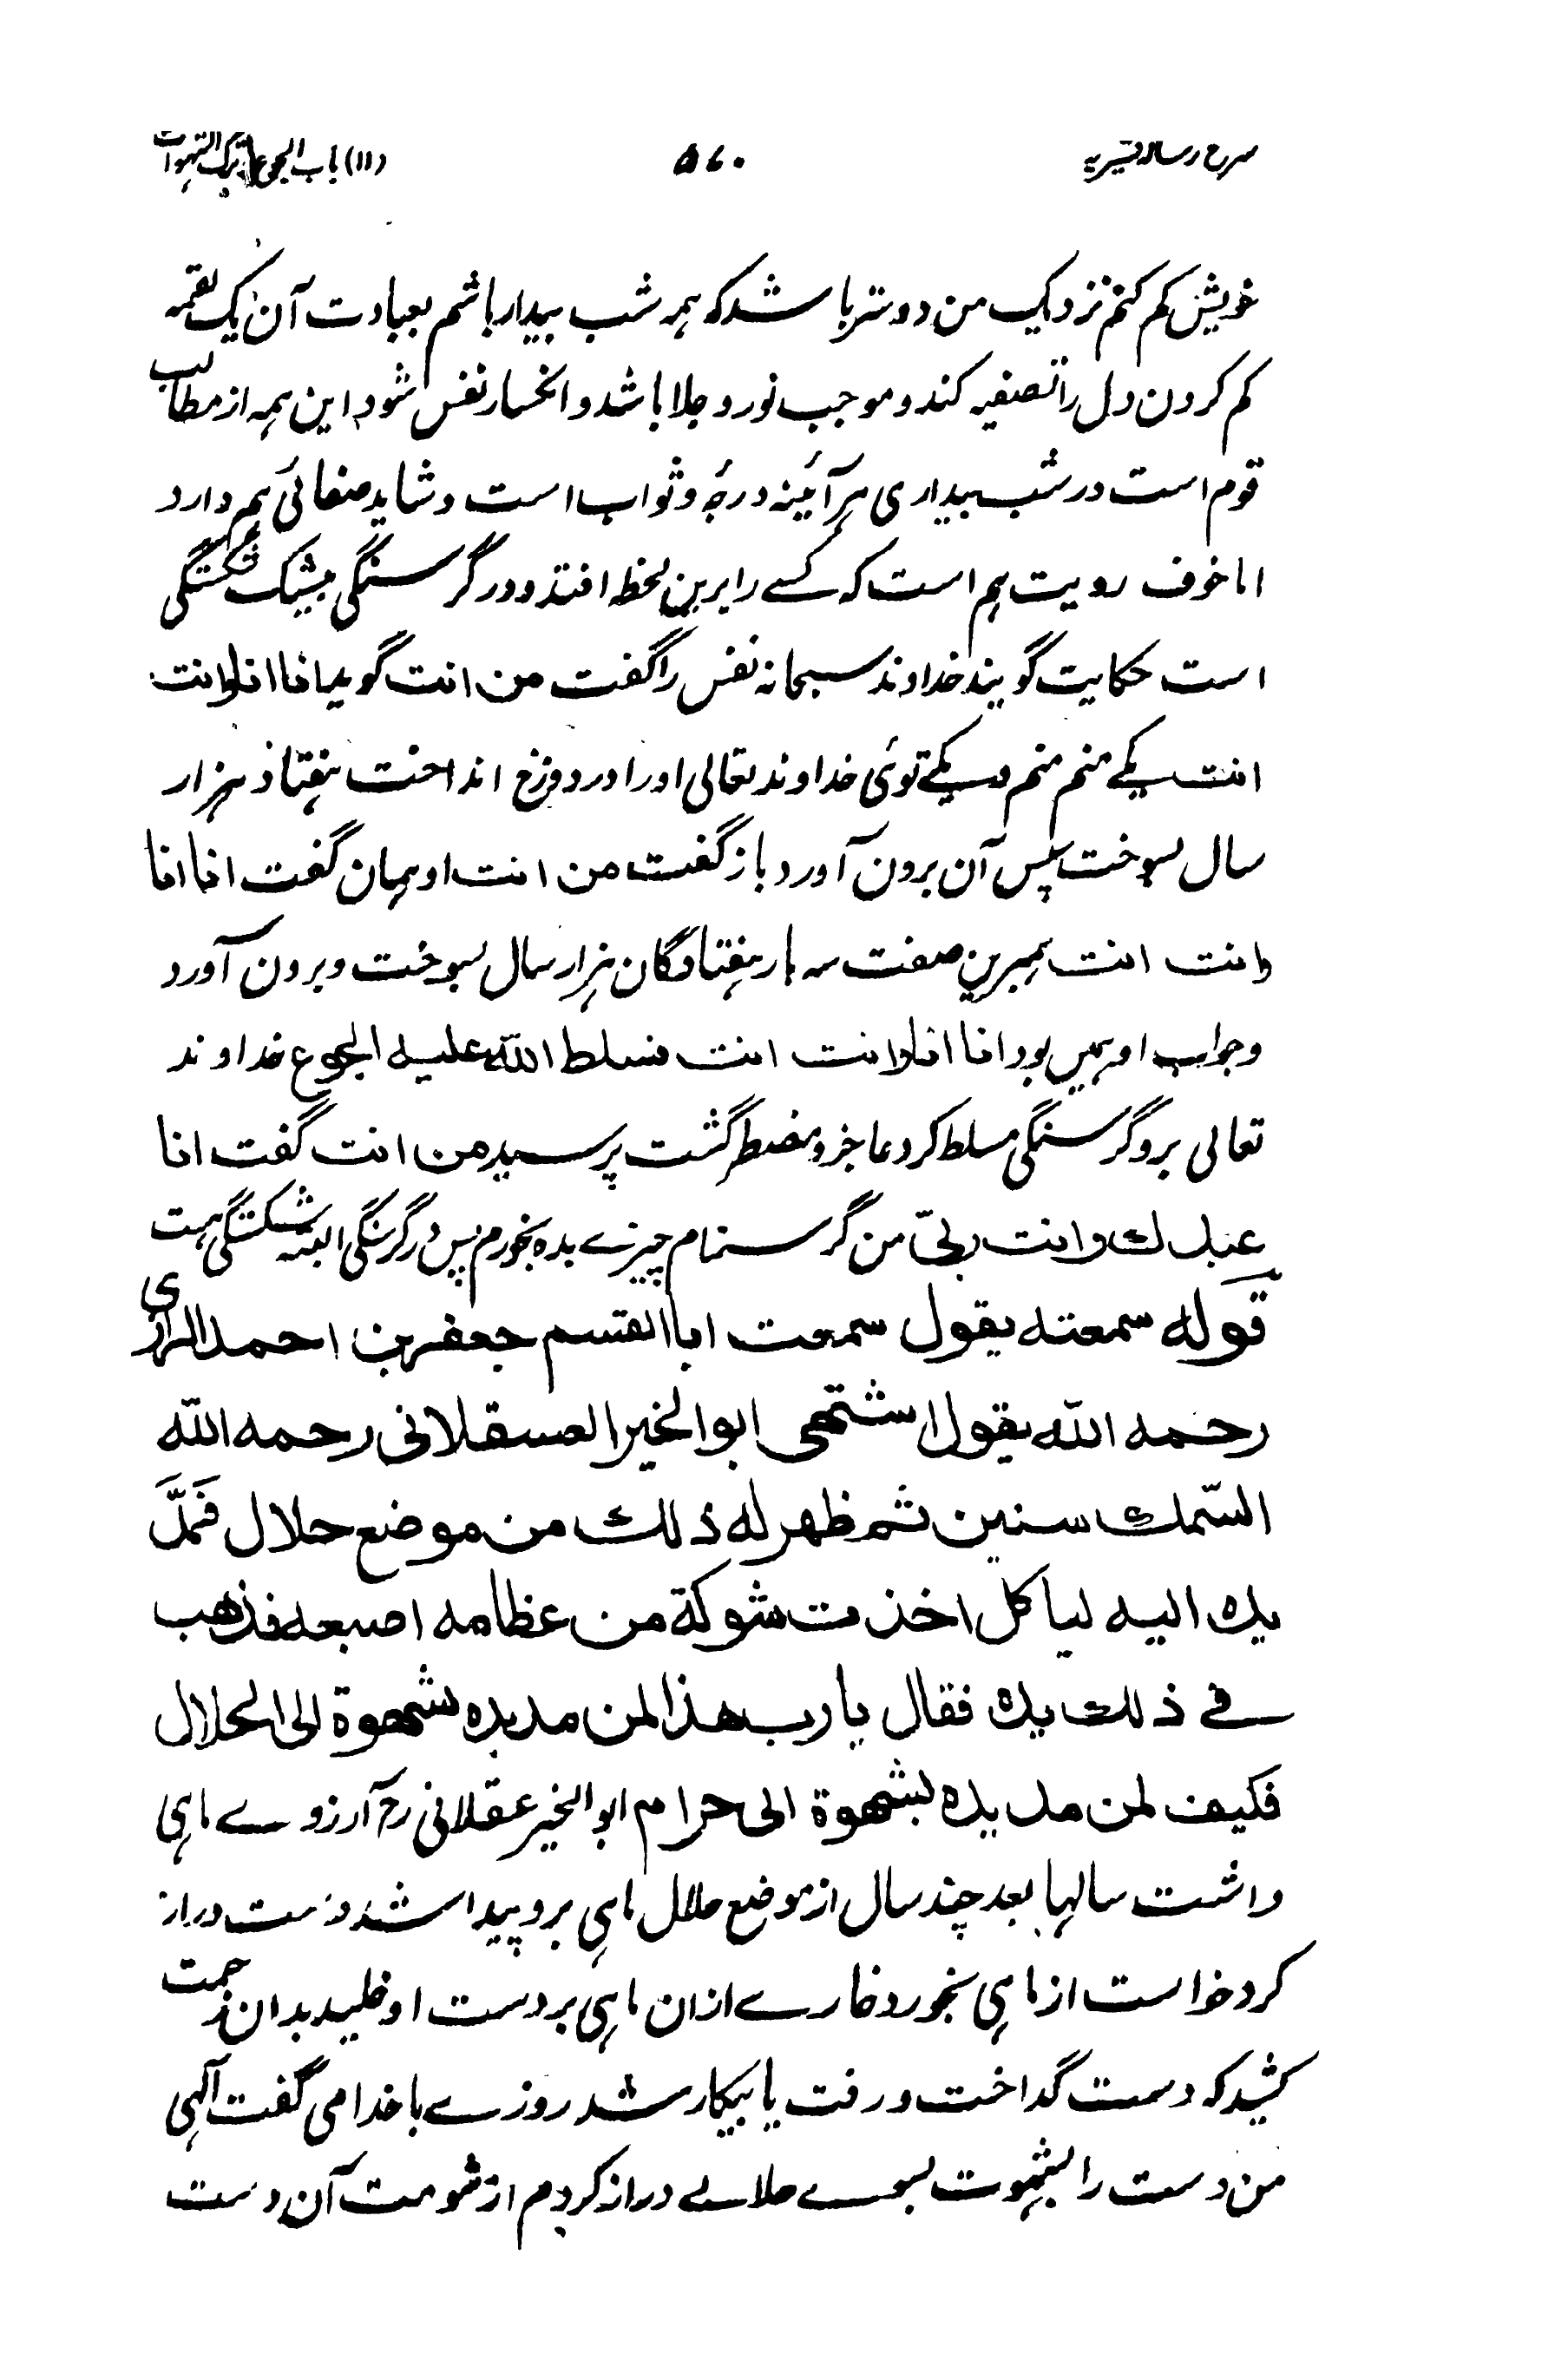 شرح رسالہ قشیریہ ۵۷۰ (۱۱) باب الجوع و ترک الشہوات
خویش کم کنم نزدیک من دوستر باشد کہ ہمہ شب بیدار باشم بعبادت آن یک لقمہ
کم کردن دل را تصفیہ کند و موجب نور و جلا باشد و انکسار نفس شود این ہمہ از مطالب
قوم است در شب بیداری ہر آئینہ درجۂ و ثواب است و شاید صفائی ہم دارد
اما خوف رویت ہم است کہ کسے را برین لحظہ افتد و در گرسنگی بیشک شکستگی
است حکایت گویند خداوند سبحانہ نفس را گفت من انت گوید انا انا و انت
انت یکے منم منم و یکے توئی خداوند تعالی او را در دوزخ انداخت ہفتاد ہزار
سال بسوخت پس آن برون آورد باز گفت من انت او ہمان گفت انا انا
و انت انت ہمبرین صفت سہ بار ہفتادگان ہزار سال بسوخت و برون آورد
و جواب او ہمین بود انا انا و انت انت فسلط اللہ علیہ الجوع خداوند
تعالی برو گرسنگی مسلط کرد عاجز و مضطر گشت پرسید من انت گفت انا
عبدك وانت ربّی من گرسنہ ام چیزے بدہ بخورم پس در گرسنگی البتہ شکستگی ہست
قوله سمعته يقول سمعت ابا القسم جعفر بن احمد الرازی
رحمه الله يقول اشتهى ابو الخير العسقلانى رحمه الله
السّمك سنين ثم ظهر له ذلك من موضع حلال فَمَدَّ
يده اليه ليأكل اخذت شوكة من عظامه اصبعه فذهب
فے ذلك يده فقال يا رب هذا لمن مد يده بشهوة الى الحلال
فكيف لمن مد يده بشهوة الى حرام ابو الخیر عسقلانی رح آرزوے ماہی
داشت سالہا بعد چند سال از موضع حلال ماہی برو پیدا شد دست دراز
کرد خواست از ماہی بخورد خارے ازان ماہی بر دست او خلید بدان زحمت
کشید کہ دست گداخت و رفت یا بیکار شد روزے با خدا می گفت آلہی
من دست را بشہوت بسوے حلالے دراز کردم از شومت آن دست